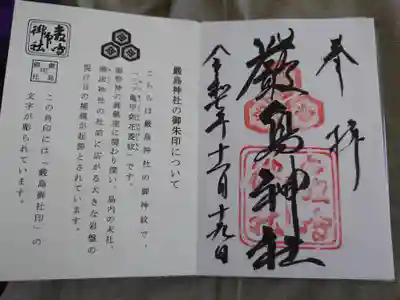 奉拝
嚴島神社
令和七年十一月十九日
嚴島神社の御朱印について
こちらは嚴島神社の御神紋で、
「三つ亀甲剣花菱紋」です。
御祭神の御鎮座に関わり深い、島内の末社、
御床神社の社前に広がる大きな岩盤の
裂け目の模様が起源とされています。
この角印には「嚴島御社印」の
文字が彫られています。